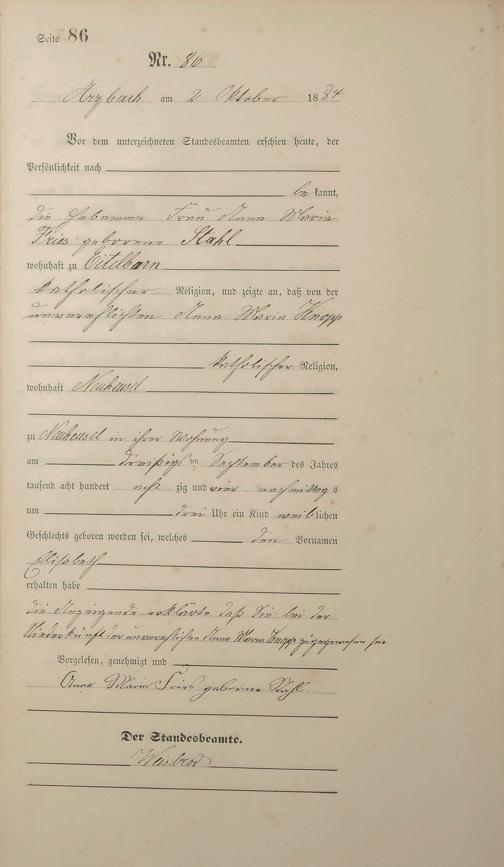 Seite 86
Nr. 86
Arzbach am 2 Oktober 1884
Vor dem unterzeichneten Standesbeamten erschien heute, der
Persönlichkeit nach
bekannt,
die Hebamme Frau Anna Maria
Fries geborene Stahl
wohnhaft zu Eitelborn
katholischer Religion, und zeigte an, daß von der
unverehlichten Anna Maria Knopp
katholischer Religion,
wohnhaft Neuheusel
zu Neuheusel in ihrer Wohnung
am dreißigsten September des Jahres
tausend acht hundert acht zig und vier nachmittags
um drei Uhr ein Kind weiblichen
Geschlechts geboren worden sei, welches den Vornamen
Elisabeth
erhalten habe
die Anzeigende erklärte daß Sie bei der
Niederkunft der unverehlichten Anna Maria Knopp zugegewesen sei
Vorgelesen, genehmigt und
Anna Maria Fries geborene Stahl
Der Standesbeamte.
Weisbrod